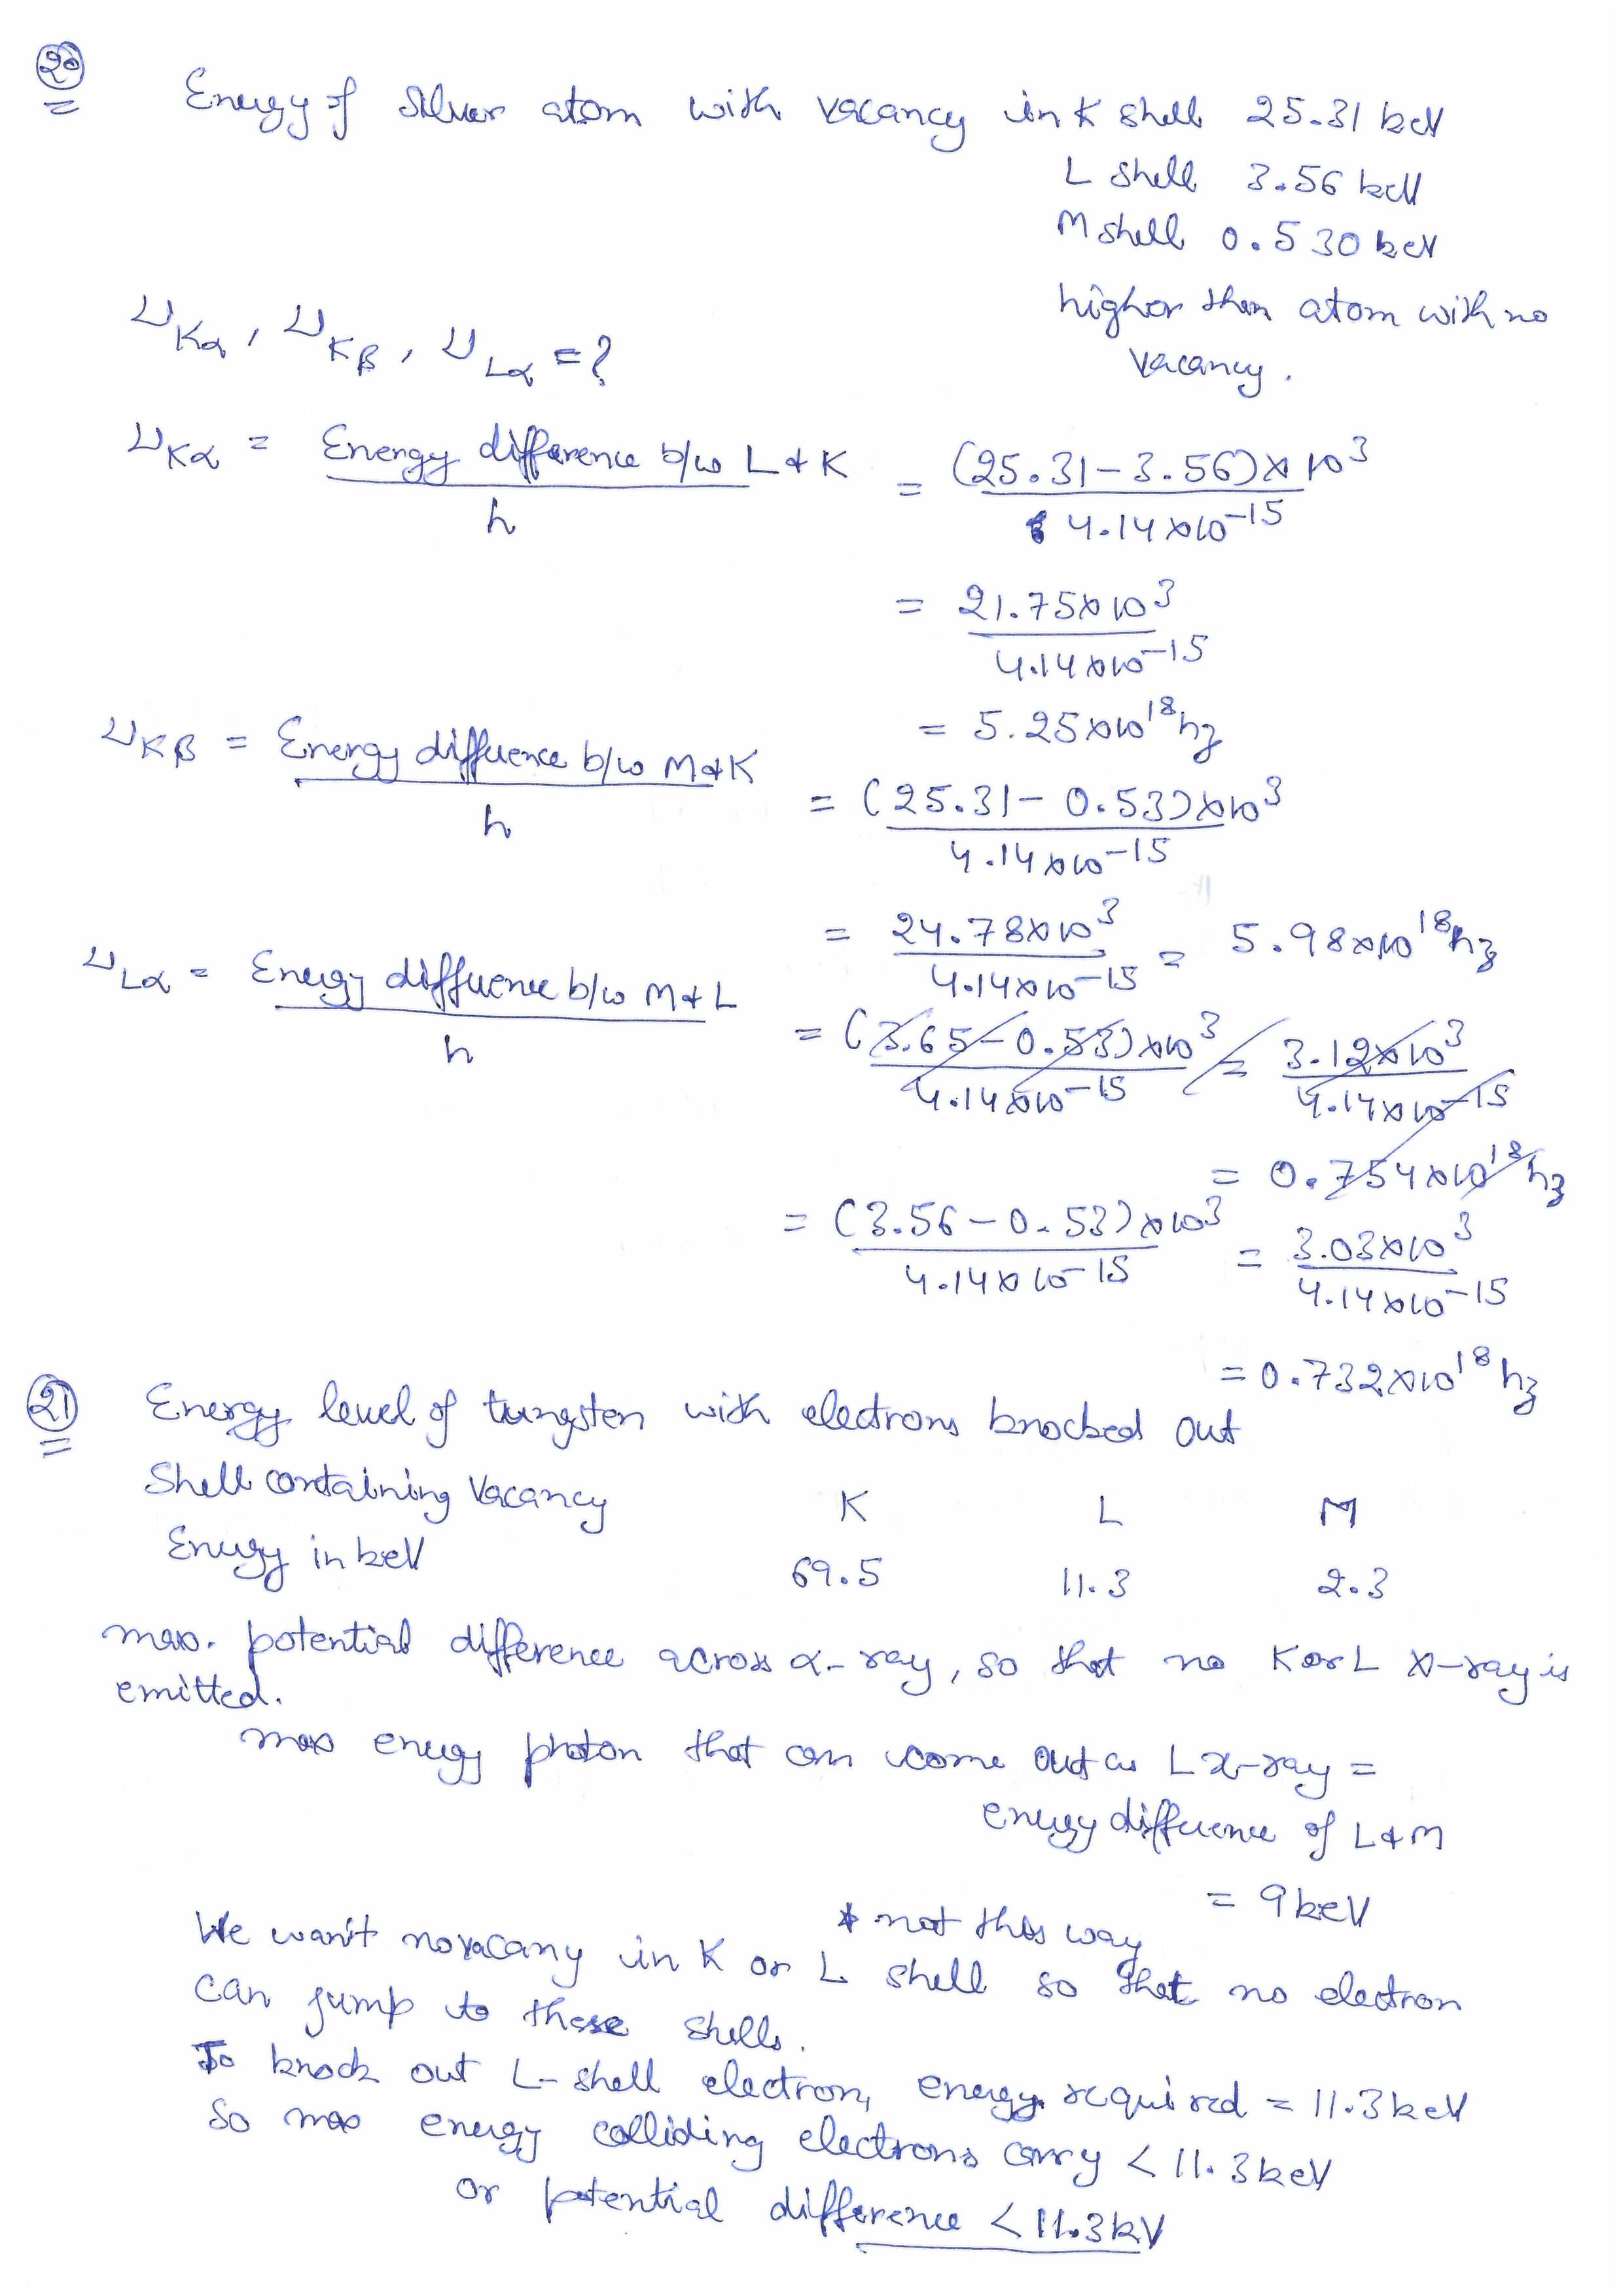 20 Energy of silver atom with vacancy in K shell 25.31 keV
L shell 3.56 keV
M shell 0.530 keV
higher than atom with no
vacancy.
νKα, νKβ, νLα = ?
νKα = Energy difference b/w L & K / h = (25.31-3.56)×10^3 / 4.14×10^-15
= 21.75×10^3 / 4.14×10^-15
= 5.25×10^18 hz
νKβ = Energy difference b/w M & K / h = (25.31-0.53)×10^3 / 4.14×10^-15
= 24.78×10^3 / 4.14×10^-15 = 5.98×10^18 hz
νLα = Energy diffuence b/w M & L / h = (3.65-0.53)×10^3 / 4.14×10^-15 = 3.12×10^3 / 4.14×10^-15
= 0.754×10^18 hz
= (3.56-0.53)×10^3 / 4.14×10^-15 = 3.03×10^3 / 4.14×10^-15
= 0.732×10^18 hz
21 Energy level of tungsten with electrons knocked out
Shell containing Vacancy K L M
Energy in keV 69.5 11.3 2.3
max. potential difference across x-ray, so that no K or L x-ray is
emitted.
max energy photon that can come out as L x-ray =
energy difference of L & M
= 9 keV
* not this way
We want no vacany in K or L shell so that no electron
can jump to these shells.
To knock out L-shell electron, energy required = 11.3 keV
So max energy colliding electrons carry < 11.3 keV
or potential difference < 11.3 kV